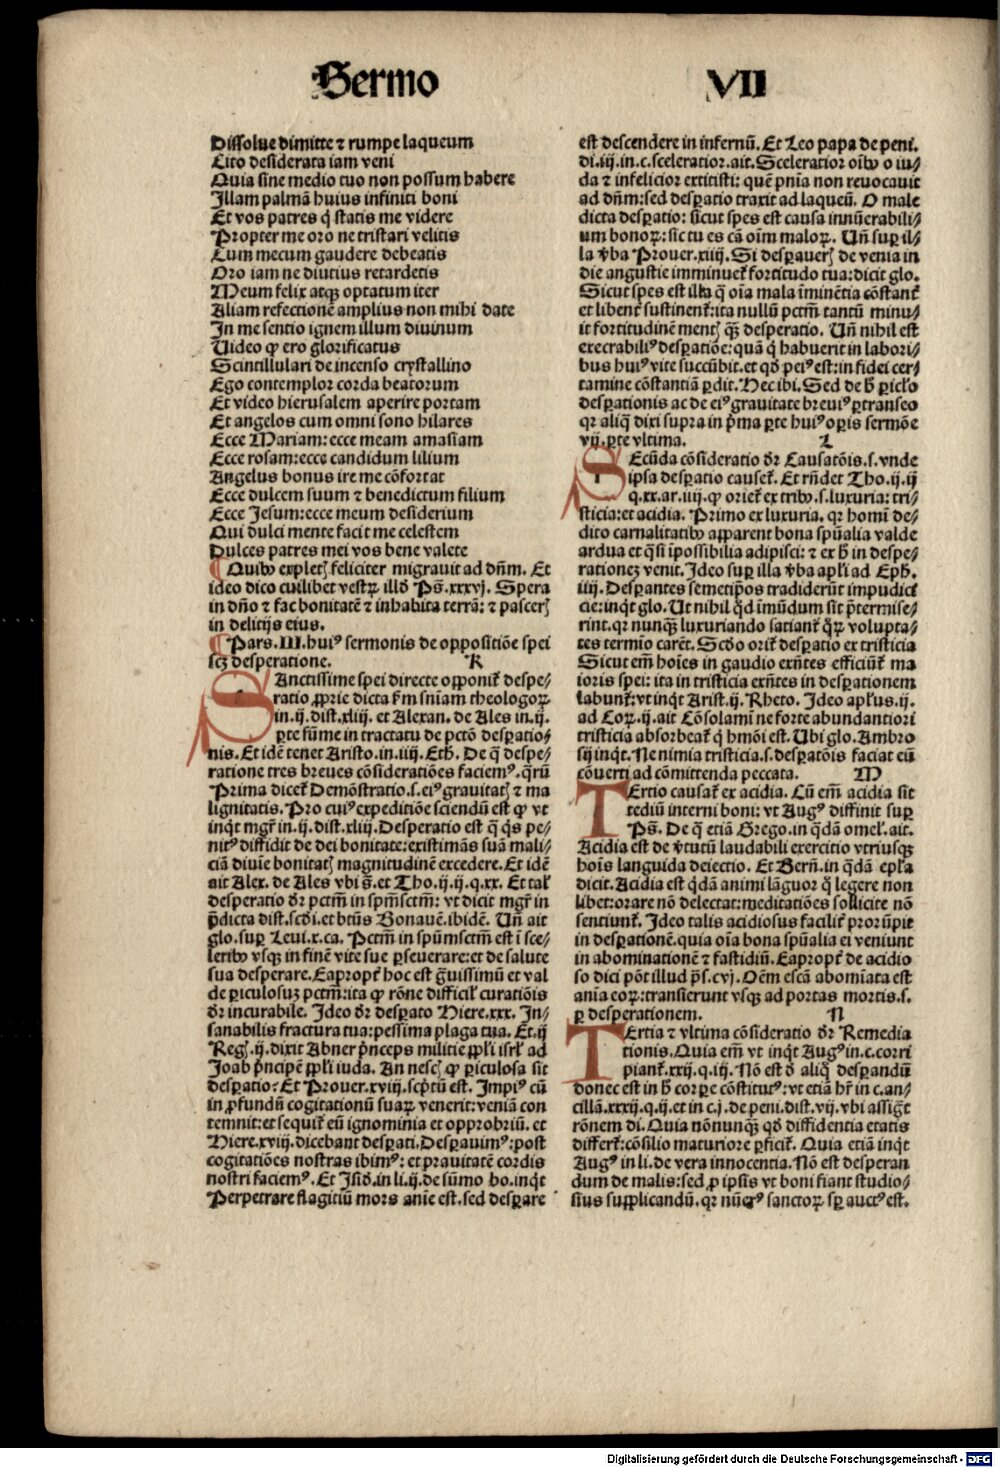 Sermo VII
Dissolue dimitte ⁊ rumpe laqueum
Cito desiderata iam veni
Quia sine medio tuo non possum habere
Illam palmā huius infiniti boni
Et vos patres q̄ statis me videre
Propter me oro ne tristari velitis
Cum mecum gaudere debeatis
Oro iam ne diutius retardetis
Meum felix atqꝫ optatum iter
Aliam refectionē amplius non mihi date
In me sentio ignem illum diuinum
Uideo ꝙ ero glorificatus
Scintillulari de incenso crystallino
Ego contemplor corda beatorum
Et video hierusalem aperire portam
Et angelos cum omni sono hilares
Ecce Mariam: ecce meam amasiam
Ecce rosam: ecce candidum lilium
Angelus bonus ire me cōfortat
Ecce dulcem suum ⁊ benedictum filium
Ecce Jesum: ecce meum desiderium
Qui dulci mente facit me celestem
Dulces patres mei vos bene valete
¶ Quibꝰ expletꝭ feliciter migrauit ad dn̄m. Et
ideo dico cuilibet vestrꝝ illđ Ps̄. xxxvj. Spera
in dn̄o ⁊ fac bonitatē ⁊ inhabita terrā: ⁊ pascerꝭ
in delitijs eius.
¶ Pars. III. huiꝰ sermonis de oppositiōe spei
scꝫ desperatione. K
SAnctissime spei directe opponit᷑ despe-
ratio ꝓprie dicta ẜm sn̄iam theologoꝝ
in. ij. dist. xliij. et Alexan. de Ales in. ij.
ꝑte sūme in tractatu de pctō desperatio-
nis. Et idē tenet Aristo. in. iiij. Eth. De q̄ despe-
ratione tres breues cōsideratiōes faciemꝰ. q̄rū
Prima dicet᷑ Demōstratio. s. eiꝰ grauitatꝭ ⁊ ma
lignitatis. Pro cuiꝰ expeditiōe sciendū est ꝙ vt
inq̇t mgr̄ in. ij. dist. xliij. Desperatio est q̄ q̇s pe-
nitꝰ diffidit de dei bonitate: existimās suā mali-
ciā diuīe bonitatꝭ magnitudinē excedere. Et idē
ait Alex. de Ales vbi s̄. et Tho. ij. ij. q. xx. Et tal᷑
desperatio dr̄ pctm̄ in spm̄sctm̄: vt dicit mgr̄ in
p̄dicta dist. scđi. et btūs Bonauē. ibidē. Un̄ ait
glo. suꝑ Leui. x. ca. Pctm̄ in spūmsctm̄ est ī sce-
leribꝰ vsqꝫ in finē vite sue ꝑseuerare: et de salute
sua desperare. Eapropt᷑ hoc est g̃uissimū et val
de ꝑiculosuꝫ pctm̄: ita ꝙ rōne difficil᷑ curatiōis
dr̄ incurabile. Ideo dr̄ despato Hiere. xxx. In-
sanabilis fractura tua: pessima plaga tua. Et. ij
Regꝭ. ij. dixit Abner p̄nceps militie ppl̄i isrl̄ ad
Joab p̄ncipē ppl̄i iuda. An nescꝭ ꝙ ꝑiculosa sit
desꝑatio? Et Prouer. xviij. scp̄tū est. Impiꝰ cū
in ꝓfundū cogitationū suaꝝ venerit: veniā con
temnit: et sequit᷑ eū ignominia et opprobriū. et
Hiere. xviij. dicebant desꝑati. Desꝑauimꝰ: post
cogitatiōes nostras ibimꝰ: et prauitatē cordis
nostri faciemꝰ. Et Isiđ. in li. ij. de sūmo bo. inq̇t
Perpetrare flagitiū mors anīe est. sed desꝑare
est descendere in infernū. Et Leo papa de peni.
di. iij. in. c. sceleratior. ait. Sceleratior oībꝰ o iu-
da ⁊ infelicior extitisti: quē pn̄ia non reuocauit
ad dn̄m: sed desꝑatio traxit ad laqueū. O male
dicta desꝑatio: sicut spes est causa innūerabili-
um bonoꝝ: sic tu es cā oīm maloꝝ. Un̄ suꝑ il-
la v̄ba Prouer. xiiij. Si desꝑauerꝭ de venia in
die angustie imminuet᷑ fortitudo tua: dicit glo.
Sicut spes est illa q̄ oīa mala īminētia cōstant᷑
et libent᷑ sustinent᷑: ita nullū pctm̄ tantū minu-
it fortitudinē mentꝭ qꝫ̄ desperatio. Un̄ nihil est
execrabiliꝰ desꝑatiōe: quā q̇ habuerit in labori-
bus huiꝰ vite succūbit. et qđ peiꝰ est: in fidei cer-
tamine cōstantiā ꝑdit. Hec ibi. Sed de h̄ ꝑicl̄o
desꝑationis ac de eiꝰ grauitate breuiꝰ ꝑtranseo
qr̄ aliq̄ dixi supra in p̄ma ꝑte huiꝰ oꝑis sermōe
vij. ꝑte vltima. L
SEcūda cōsideratio dr̄ Causatōis. s. vnde
ipsa desꝑatio causet᷑. Et rn̄det Tho. ij. ij
q. xx. ar. iiij. ꝙ oriet᷑ ex tribꝰ. s. luxuria: tri-
sticia: et acidia. Primo ex luxuria. qr̄ homī de-
dito carnalitatibꝰ apparent bona spūalia valde
ardua et q̄si īpossibilia adipisci: ⁊ ex h̄ in despe-
rationeꝫ venit. Ideo suꝑ illa v̄ba apl̄i ad Eph.
iiij. Desꝑantes semetip̄os tradiderūt impudici
cie: inq̇t glo. Ut nihil q̇d īmūdum sit p̄termise-
rint. qr̄ nunqꝫ̄ luxuriando satiant᷑ q̄ꝝ volupta-
tes termīo carēt. Scđo orit᷑ desꝑatio ex tristicia
Sicut em̄ hoīes in gaudio exn̄tes efficiūt᷑ ma
ioris spei: ita in tristicia exn̄tes in desꝑationem
labunt᷑: vt inq̇t Arist. ij. Rheto. Ideo apl̄us. ij.
ad Coꝝ. ij. ait Cōsolamī ne forte abundantiori
tristicia absorbeat᷑ q̇ hmōi est. Ubi glo. Ambro
sij inq̇t. Ne nimia tristicia. s. desꝑatōis faciat eū
cōuerti ad cōmittenda peccata. M
TErtio causat᷑ ex acidia. Cū em̄ acidia sit
tediū interni boni: vt Augꝰ diffinit suꝑ
Ps̄. De q̄ etiā Grego. in q̄dā omel᷑. ait.
Acidia est de v̄tutū laudabili exercitio vtriusqꝫ
hoīs languida deiectio. Et Bern̄. in q̄dā epl̄a
dicit. Acidia est q̄dā animi lāguor q̇ legere non
libet: orare nō delectat: meditatiōes sollicite nō
sentiunt᷑. Ideo talis acidiosus facilit᷑ prorūpit
in desꝑationē. quia oīa bona spūalia ei veniunt
in abominationē ⁊ fastidiū. Eapropt᷑ de acidio
so dici pōt illud ps̄. cvj. Oēm escā abomīata est
anīa eoꝝ: transierunt vsqꝫ ad portas mortis. s.
ꝑ desperationem. N
TErtia ⁊ vltima cōsideratio dr̄ Remedia
tionis. Quia em̄ vt inq̇t Augꝰ in. c. corri
piant᷑. xxij. q. iij. Nō est đ aliq̇ desꝑandū
donec est in h̄ corꝑe cōstitutꝰ: vt etiā hr̄ in c. an-
cillā. xxxij. q. ij. et in c. j. de peni. dist. vij. vbi assig̃t
rōnem di. Quia nōnunqꝫ̄ qđ diffidentia etatis
differt᷑: cōsilio maturiore ꝑficit᷑. Quia etiā inq̇t
Augꝰ in li. de vera innocentia. Nō est desperan
dum de malis: sed ꝓ ipsis vt boni fiant studio-
sius supplicandū. qr̄ nūerꝰ sanctoꝝ sꝑ auctꝰ est.
Digitalisierung gefördert durch die Deutsche Forschungsgemeinschaft - DFG